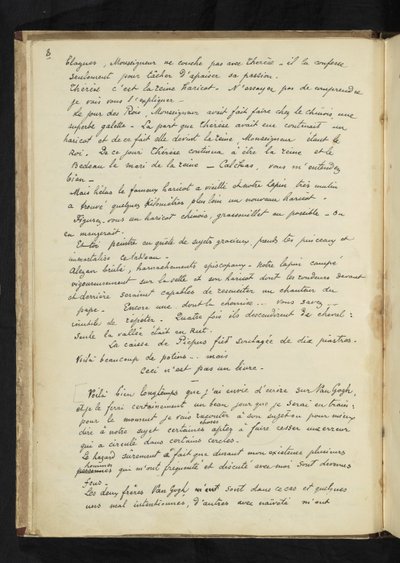 8
blaguer, Monseigneur ne couche pas avec Thérèse - il la confesse
seulement pour tâcher d'apaiser sa passion.
Thérèse c'est la reine haricot. N'essayez pas de comprendre
je vais vous l'expliquer -
Le jour des Rois, Monseigneur avait fait faire chez le chinois une
superbe galette. La part que Thérèse avait eue contenait un
haricot et de ce fait elle devint la reine, Monseigneur étant le
Roi. De ce jour Thérèse continua à être la reine et le
Bedeau le mari de la reine - Calchas, vous m'entendez
bien -
Mais hélas le fameux haricot a vieilli et notre lapin très malin
a trouvé quelques kilomètres plus loin un nouveau haricot.
Figurez-vous un haricot chinois, grassouillet au possible - On
en mangerait.
peintre en quête de sujets gracieux, prends tes pinceaux et
immortalise ce tableau -
Alezan brûlé, harnachements épiscopaux - Notre lapin campé
vigoureusement sur la selle et son haricot dont les rondeurs devant
et derrière seraient capables de ressusciter un chanteur du
pape. Encore une dont la chemise... vous savez -
inutile de répéter. Quatre fois ils descendirent de cheval:
toute la vallée était en rut.
La caisse de Picpus fut soulagée de dix piastres.
Voilà beaucoup de potins... mais
Ceci n'est pas un livre -
Voilà bien longtemps que j'ai envie d'écrire sur Van Gogh
et je le ferai certainement un beau jour que je serai en train:
pour le moment je vais raconter à son sujet ou pour mieux
dire à notre sujet certaines choses aptes à faire cesser une erreur
qui a circulé dans certains cercles.
Le hasard sûrement a fait que durant mon existence plusieurs
hommes qui m'ont fréquenté et discuté avec moi sont devenus
fous.
Les deux frères Van Gogh sont dans ce cas et quelques
uns mal intentionnés, d'autres avec naïveté m'ont